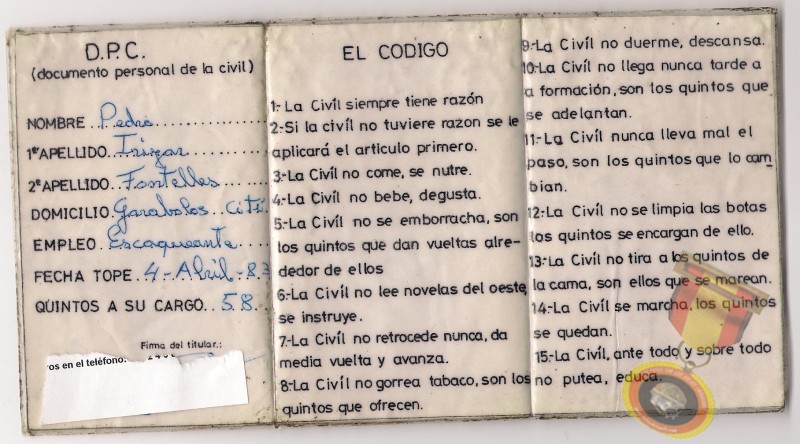 D.P.C.
(documento personal de la civil)
NOMBRE..Pedro
1er APELLIDO.Irizar
2º APELLIDO.Fontelles
DOMICILIO.Garabolos..citi
EMPLEO.Escaqueante
FECHA TOPE.4-Abril-83
QUINTOS A SU CARGO..58
Firma del titular.:
os en el teléfono.
EL CODIGO
1.-La Civíl siempre tiene razón
2.-Si la civíl no tuviere razon se le
aplicará el articulo primero.
3.-La Civíl no come, se nutre.
4.-La Civíl no bebe, degusta.
5.-La Civíl no se emborracha, son
los quintos que dan vueltas alre-
dedor de ellos
6.-La Civíl no lee novelas del oeste,
se instruye.
7.-La Civíl no retrocede nunca, da
media vuelta y avanza.
8.-La Civíl no gorrea tabaco, son los
quintos que ofrecen.
9.-La Civíl no duerme, descansa.
10.-La Civíl no llega nunca tarde a
a formación, son los quintos que
se adelantan.
11.-La Civíl nunca lleva mal el
paso, son los quintos que lo cam
bian.
12.-La Civíl no se limpia las botas
los quintos se encargan de ello.
13.-La Civíl no tira a los quintos de
la cama, son ellos que se marean.
14.-La Civíl se marcha, los quintos
se quedan.
15.-La Civíl, ante todo y sobre todo
no putea, educa.